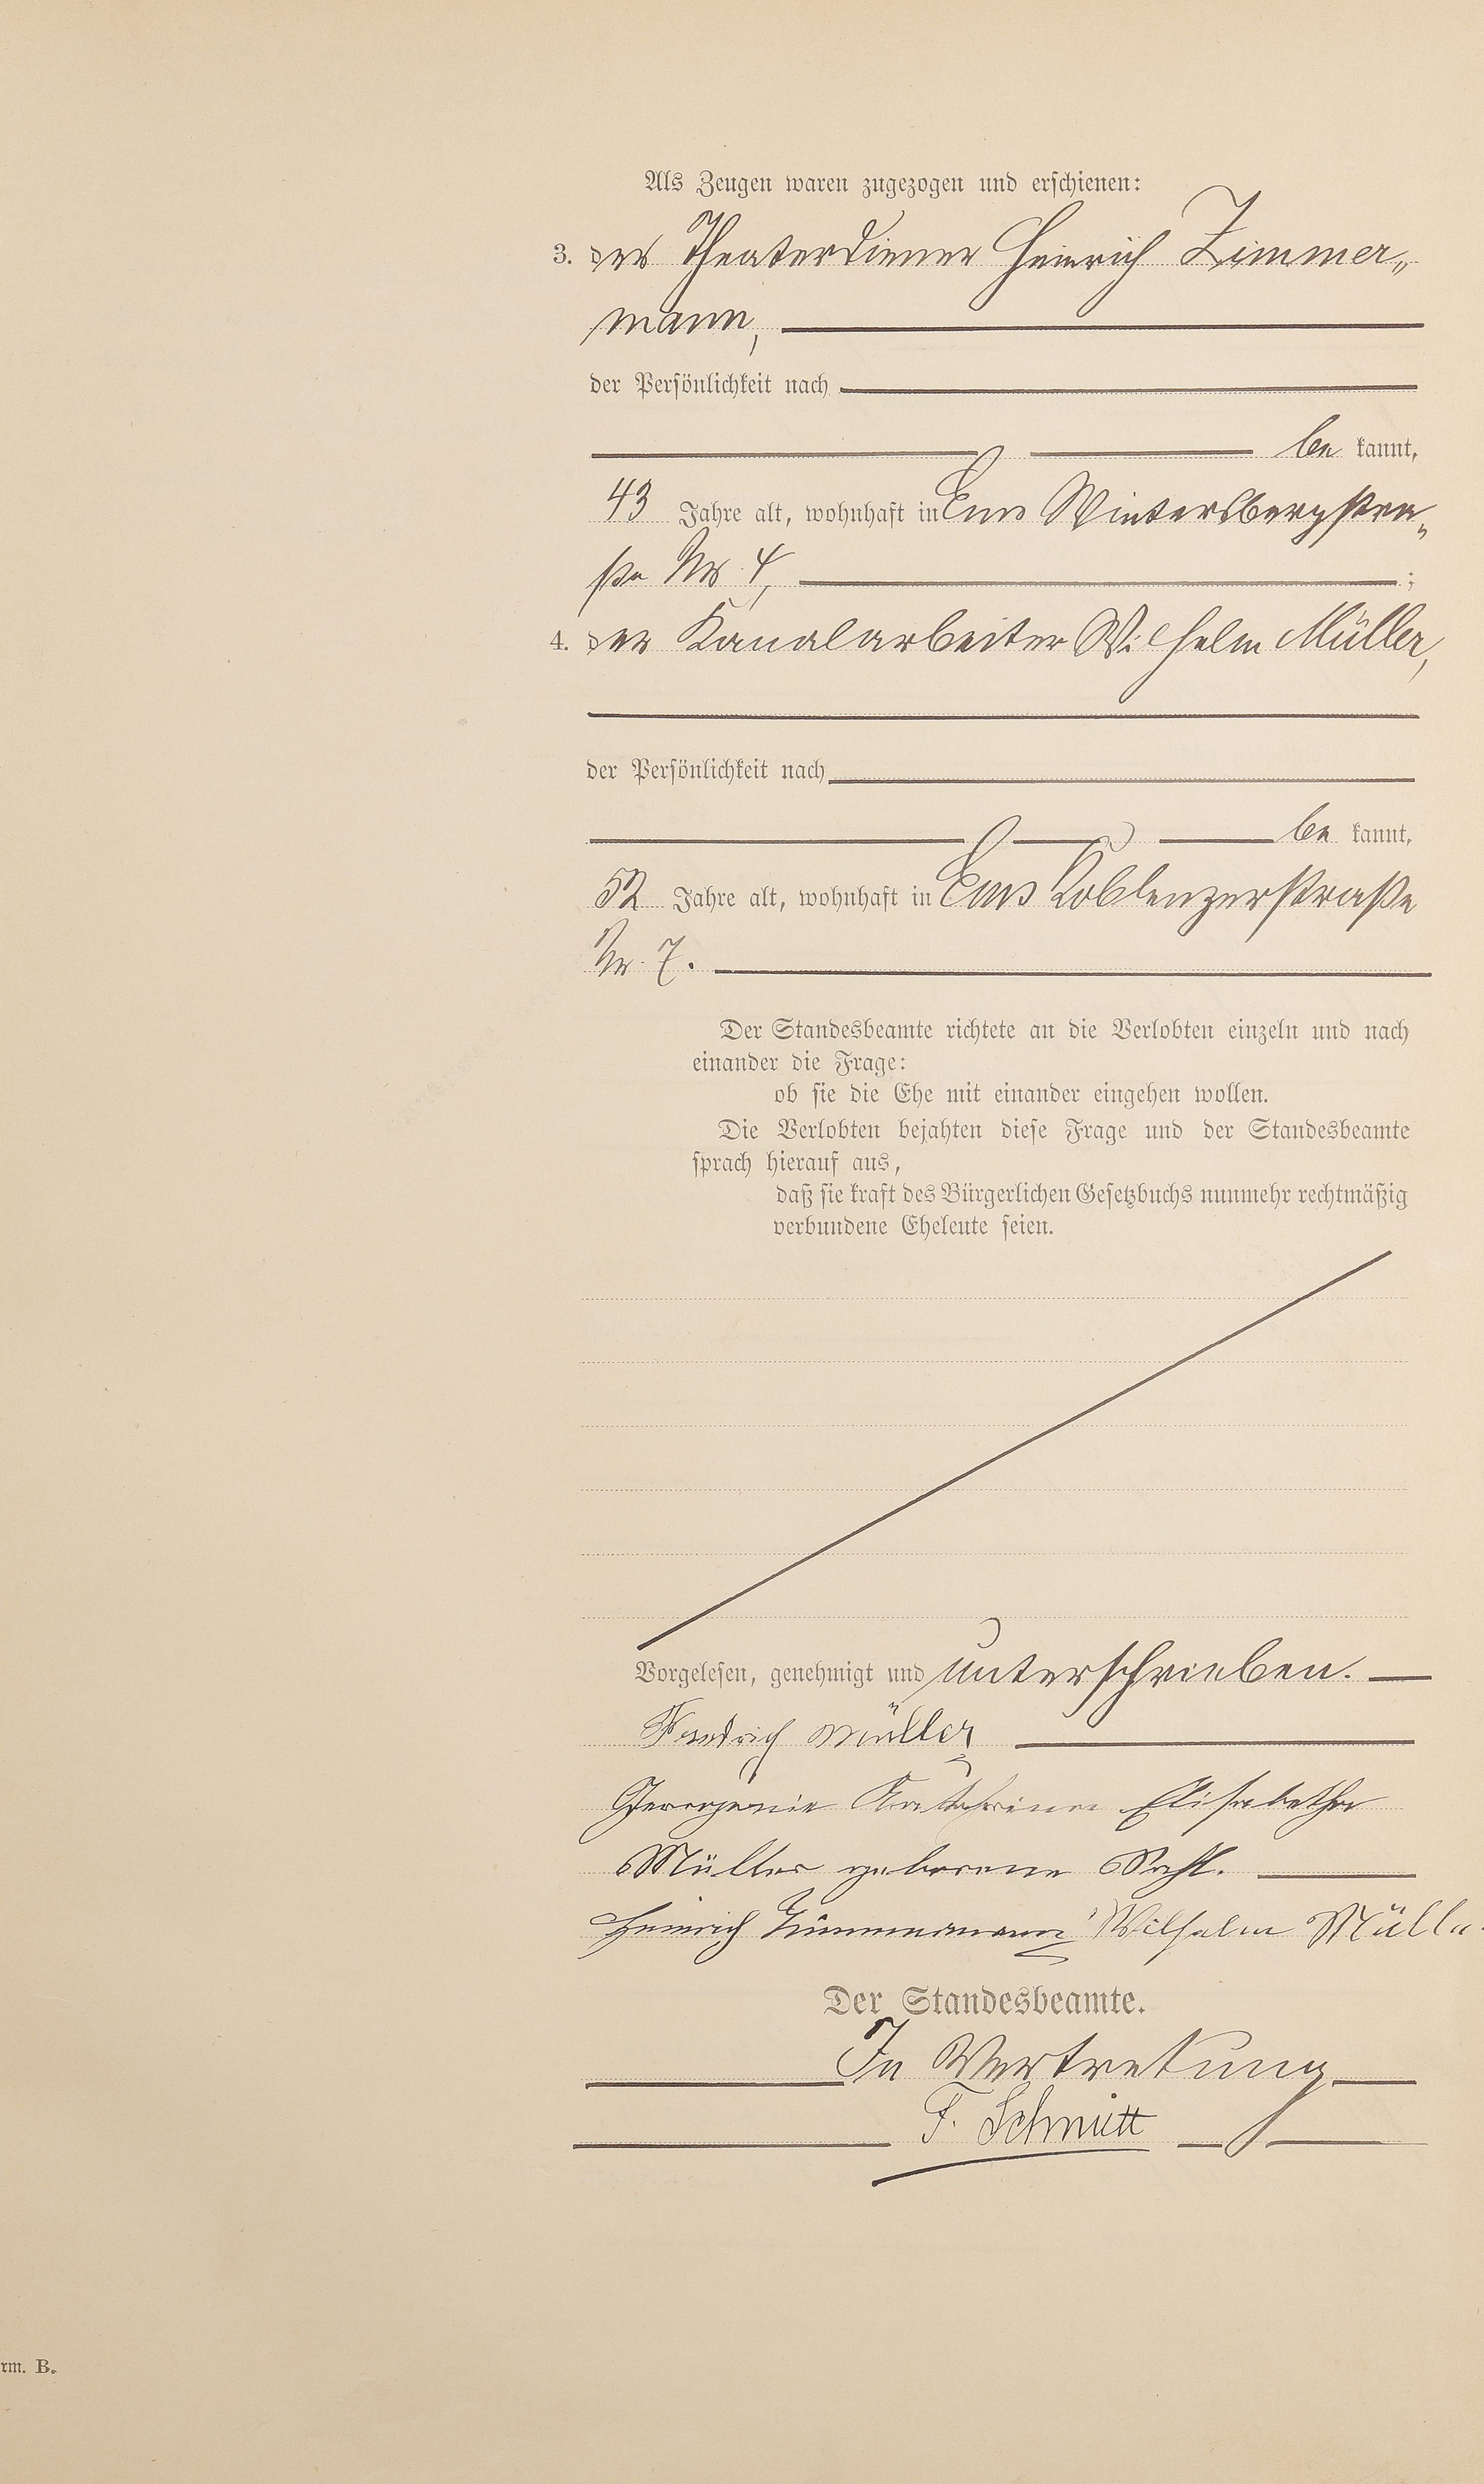 Als Zeugen waren zugezogen und erschienen:
3. der Theaterdiener Heinrich Zimmer„
mann,
der Persönlichkeit nach
be kannt,
43 Jahre alt, wohnhaft in Ems Wintersbergstra„
ße Nr 4, ;
4. der Kanalarbeiter Wilhelm Müller,
der Persönlichkeit nach
be kannt,
52 Jahre alt, wohnhaft in Ems Koblenzerstraße
Nr. 7.
Der Standesbeamte richtete an die Verlobten einzeln und nach
einander die Frage:
ob sie die Ehe mit einander eingehen wollen.
Die Verlobten bejahten diese Frage und der Standesbeamte
sprach hierauf aus,
daß sie kraft des Bürgerlichen Gesetzbuchs nunmehr rechtmäßig
verbundene Eheleute seien.
Vorgelesen, genehmigt und unterschrieben.
Friedrich Müller
Katharina Elisabetha
Müller geborene
Heinrich Zimmermann Wilhelm Müller
Der Standesbeamte.
In Vertretung
F. Schmitt
rm. B.